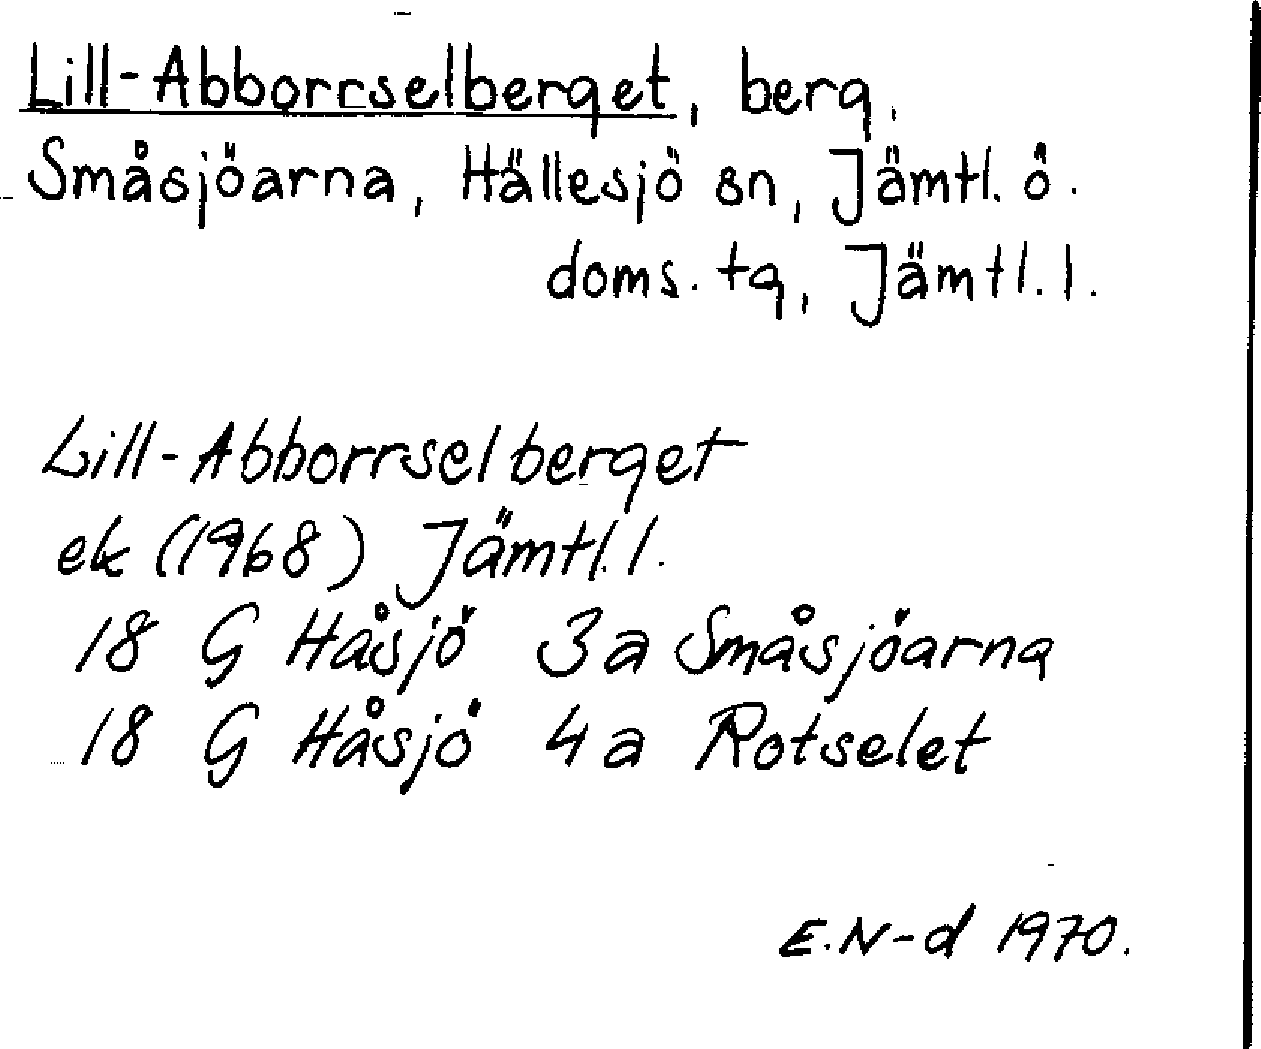 Lill-Abborrselberget, berg,
Småsjöarna, Hällesjö sn, Jämtl. ö.
doms. tg, Jämtl. l.
Lill-Abborrselberget
ek (1968) Jämtl. l.
18 G Håsjö 3a Småsjöarna
18 G Håsjö 4a Rotselet
E.N-d 1970.